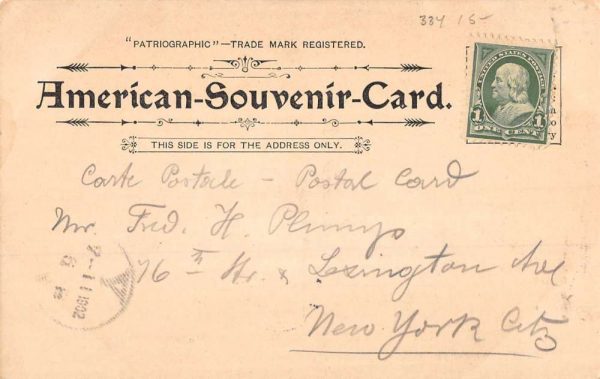 334 15-
"PATRIOGRAPHIC"—TRADE MARK REGISTERED.
American-Souvenir-Card.
THIS SIDE IS FOR THE ADDRESS ONLY.
UNITED STATES
1 1
ONE CENT
Carte Postale - Postal Card
Mr. Fred. H.
76th Str. & Lexington Ave
New York City
1902